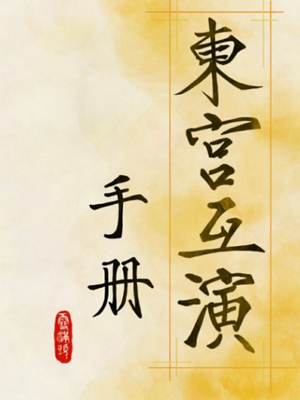 東宮互演
手册